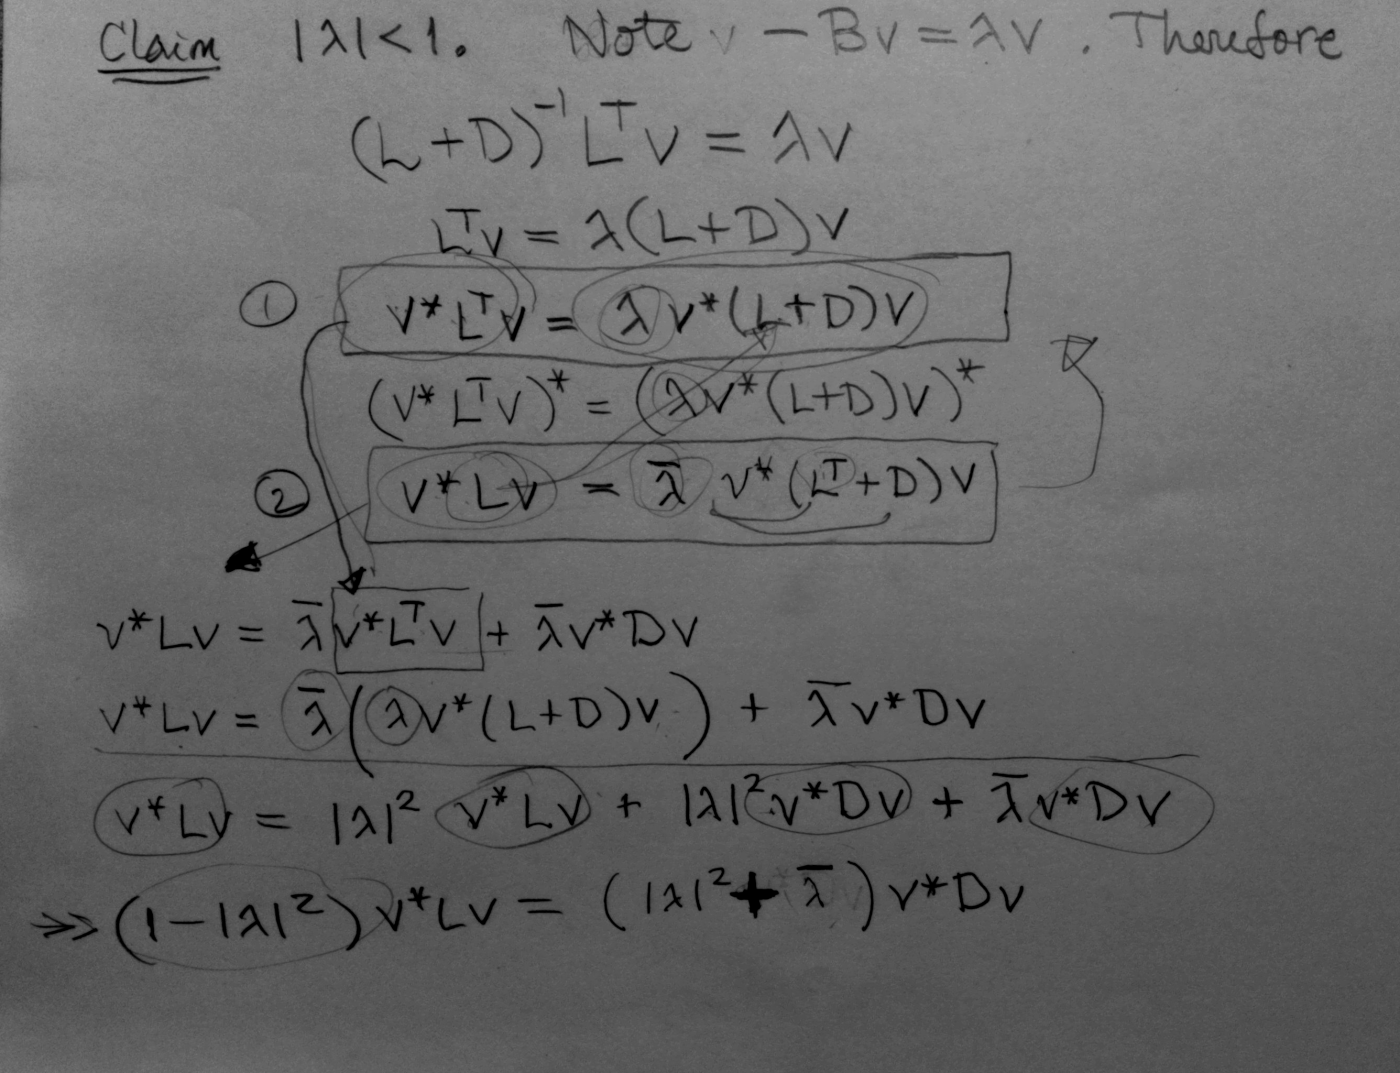 Claim |λ| < 1. Note v − Bv = λv. Therefore
(L+D)⁻¹ Lᵀv = λv
Lᵀv = λ(L+D)v
① v*Lᵀv = λ v*(L+D)v
(v*Lᵀv)* = (λv*(L+D)v)*
② v*Lv = λ̄ v*(Lᵀ+D)v
v*Lv = λ̄ v*Lᵀv + λ̄v*Dv
v*Lv = λ̄(λv*(L+D)v) + λ̄v*Dv
v*Lv = |λ|² v*Lv + |λ|² v*Dv + λ̄v*Dv
⋙ (1−|λ|²)v*Lv = (|λ|² + λ̄)v*Dv